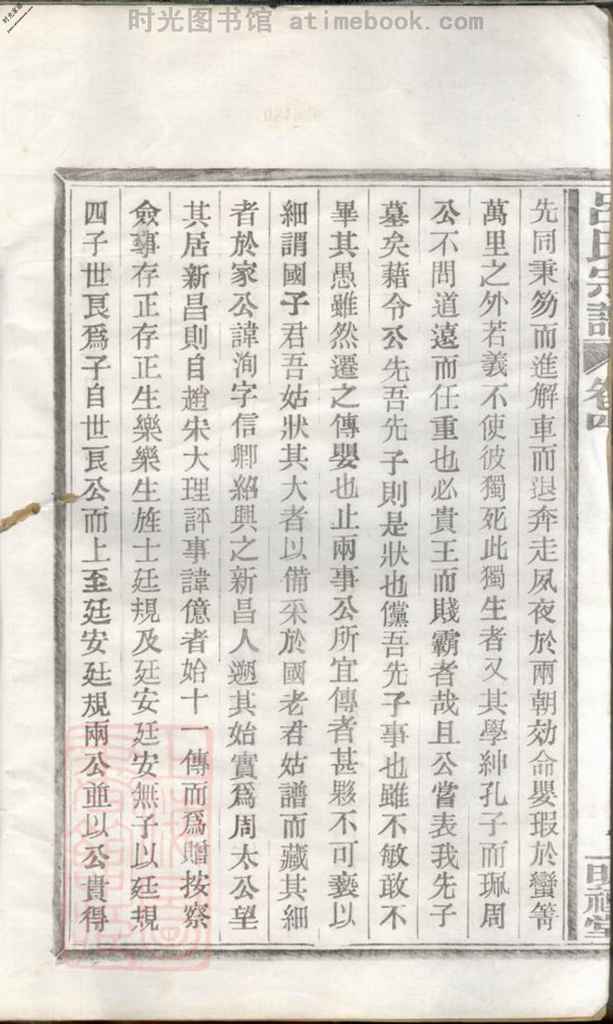 时光图书馆 atimebook.com
呂氏宗譜 卷四 明禋堂
先同秉笏而進解車而退奔走夙夜於兩朝効命嬰瑕於蠻箐
萬里之外若義不使彼獨死此獨生者又其學紳孔子而珮周
公不問道遠而任重也必貴王而賤霸者哉且公嘗表我先子
墓矣藉令公先吾先子則是狀也儻吾先子事也雖不敏敢不
畢其愚雖然遷之傳嬰也止兩事公所宜傳者甚夥不可褻以
細謂國子君吾姑狀其大者以備采於國老君姑譜而藏其細
者於家公諱洵字信卿紹興之新昌人遡其始實爲周太公望
其居新昌則自趙宋大理評事諱億者始十一傳而爲贈按察
僉事存正存正生樂樂生旌士廷規及廷安廷安無子以廷規
四子世良爲子自世良公而上至廷安廷規兩公並以公貴得